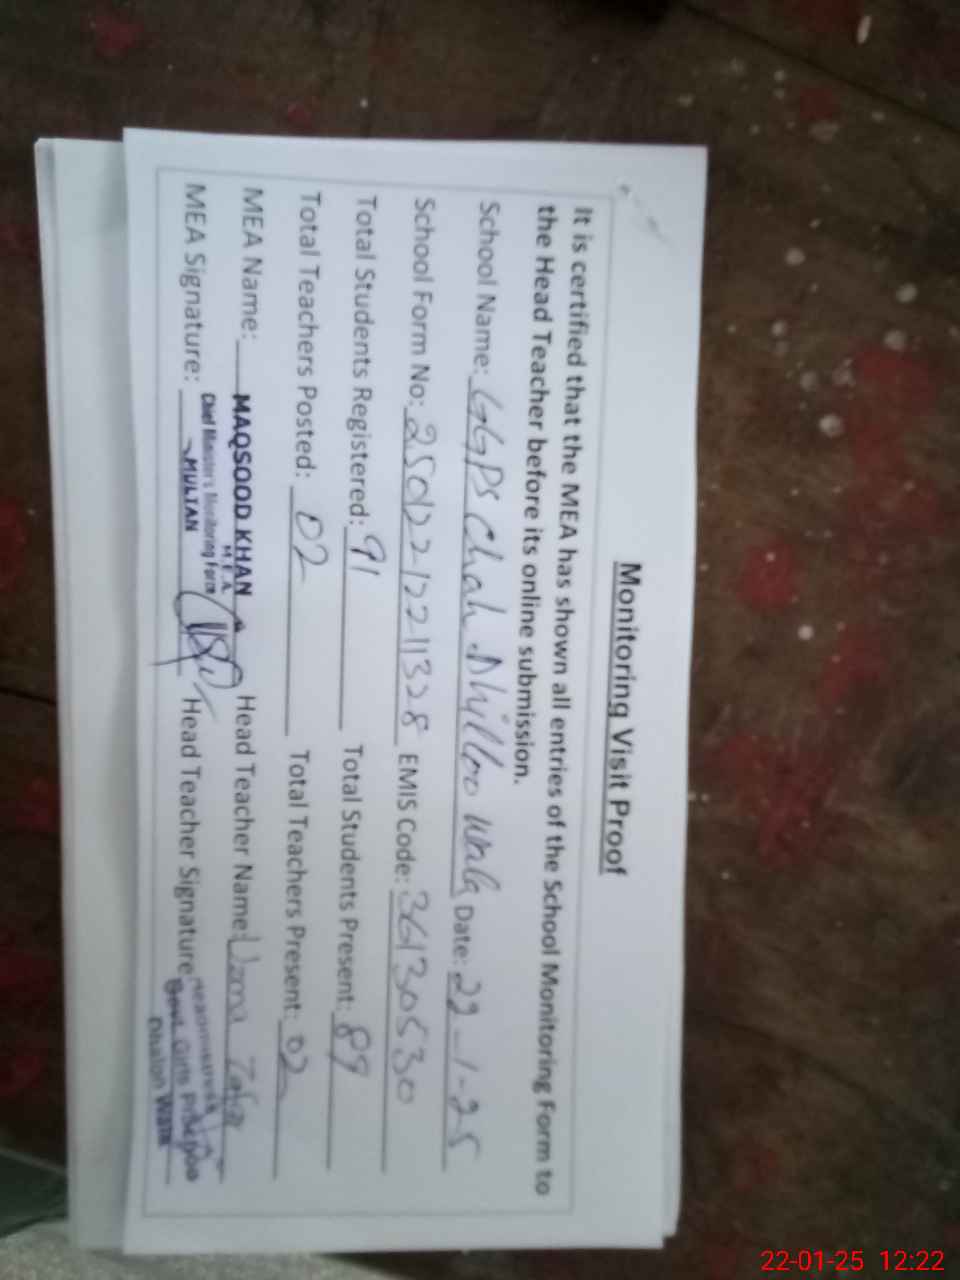 Monitoring Visit Proof
It is certified that the MEA has shown all entries of the School Monitoring Form to
the Head Teacher before its online submission.
School Name: GGPS Chah Dhilloo wala Date: 22-1-25
School Form No: 250122-12211328 EMIS Code: 36130530
Total Students Registered: 91 Total Students Present: 89
Total Teachers Posted: 02 Total Teachers Present: 02
MEA Name: MAQSOOD KHAN Head Teacher Name: Uzma
M.E.A.
MEA Signature: Chief Minister's Monitoring Form Head Teacher Signature
MULTAN
Govt. Girls
22-01-25 12:22